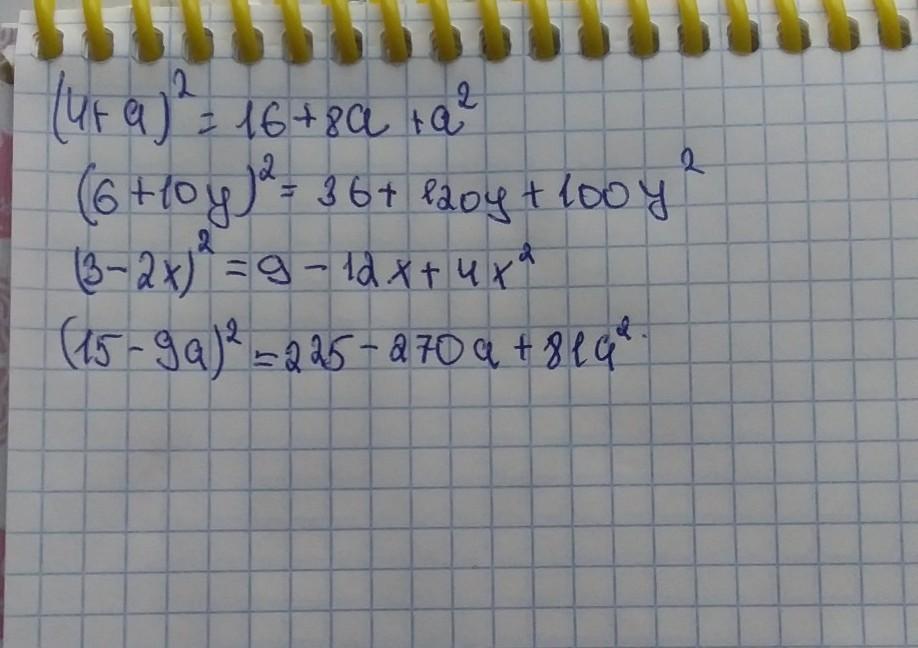 (4+a)² = 16+8a+a²
(6+10y)² = 36+120y+100y²
(3-2x)² = 9-12x+4x²
(15-9a)² = 225-270a+81a².